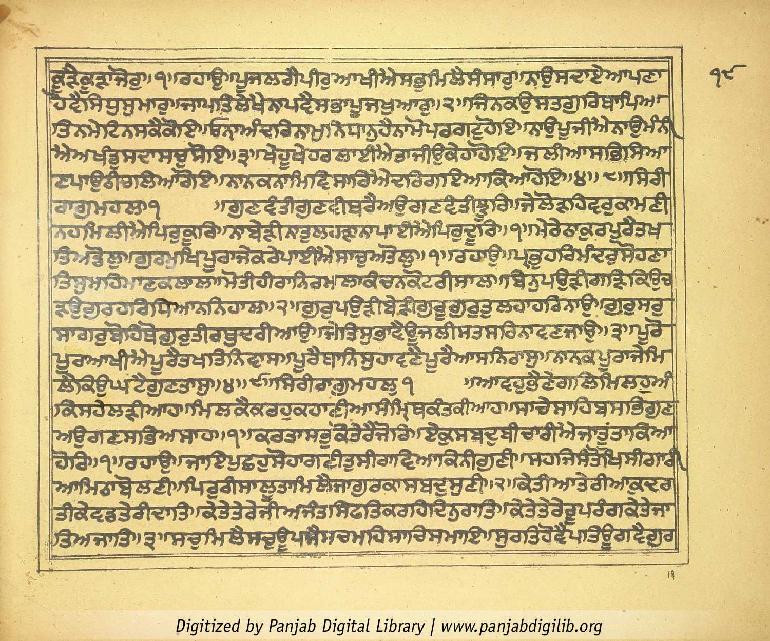 ਕੂੜੈਕੂੜਾਜੋਰੁ॥੧॥ਰਹਾਉ॥ਪੂਜਲਗੈਪੀਰੁਆਖੀਐਸਭੁਮਿਲੈਸੰਸਾਰੁ॥ਨਾਉਸਦਾਏਆਪਣਾ ੧੮
ਹੋਵੈਸਿਧੁਸੁਮਾਰੁ॥ਜਾਪਤਿਲੇਖੈਨਾਪਵੈਸਭਾਪੂਜਖੁਆਰੁ॥੨॥ਜਿਨਕਉਸਤਗੁਰਿਥਾਪਿਆ
ਤਿਨਮੇਟਿਨਸਕੈਕੋਇ॥ਓਨਾਅੰਦਰਿਨਾਮੁਨਿਧਾਨੁਹੈਨਾਮੋਪਰਗਟੁਹੋਇ॥ਨਾਉਪੂਜੀਐਨਾਉਮੰਨੀ
ਐਅਖੰਡੁਸਦਾਸਚੁਸੋਇ॥੩॥ਖੇਹੂਖੇਹਰਲਾਈਐਤਾਜੀਉਕੇਹਾਹੋਇ॥ਜਲੀਆਸਭਿਸਿਆ
ਣਪਾਉਠੀਚਲਿਆਰੋਇ॥ਨਾਨਕਨਾਮਿਵਿਸਾਰਿਐਦਰਿਗਇਆਕਿਆਹੋਇ॥੪॥੮॥ਸਿਰੀ
ਰਾਗੁਮਹਲਾ੧ ॥ਗੁਣਵੰਤੀਗੁਣਵੀਥਰੈਅਉਗੁਣਵੰਤੀਝੂਰਿ॥ਜੇਲੋੜਹਿਵਰੁਕਾਮਣੀ
ਨਹਮਿਲੀਐਪਿਰੁਕੂਰਿ॥ਨਾਬੇੜੀਨਤੁਲਹੜਾਨਾਪਾਈਐਪਿਰੁਦੂਰਿ॥੧॥ਮੇਰੇਠਾਕੁਰਪੂਰੈਤਖ
ਤਿਅਡੋਲੁ॥ਗੁਰਮੁਖਿਪੂਰਾਜੇਕਰੇਪਾਈਐਸਾਚੁਅਤੋਲੁ॥੧॥ਰਹਾਉ॥ਪ੍ਰਭੁਹਰਿਮੰਦਰੁਸੋਹਣਾ
ਤਿਸੁਮਹਿਮਾਣਕਲਾਲ॥ਮੋਤੀਹੀਰਾਨਿਰਮਲਾਕੰਚਨਕੋਟਰੀਸਾਲ॥ਬਿਨੁਪਉੜੀਗੜਿਕਿਉਚ
ੜਉਗੁਰਹਰਿਧਿਆਨਨਿਹਾਲ॥੨॥ਗੁਰੁਪਉੜੀਬੇੜੀਗੁਰੂਗੁਰੁਤੁਲਹਾਹਰਿਨਾਉ॥ਗੁਰੁਸਰੁ
ਸਾਗਰੁਬੋਹਿਥੋਗੁਰੁਤੀਰਥੁਦਰੀਆਉ॥ਜੇਤਿਸੁਭਾਵੈਊਜਲੀਸਤਸਰਿਨਾਵਣਜਾਉ॥੩॥ਪੂਰੋ
ਪੂਰਾਆਖੀਐਪੂਰੈਤਖਤਿਨਿਵਾਸ॥ਪੂਰੈਥਾਨਿਸੁਹਾਵਣੈਪੂਰੈਆਸਨਿਰਾਸ॥ਨਾਨਕਪੂਰਾਜੇਮਿ
ਲੈਕਿਉਘਾਟੈਗੁਣਤਾਸ॥੪॥੯॥ਸਿਰੀਰਾਗੁਮਹਲਾ੧ ॥ਆਵਹੁਭੈਣੇਗਲਿਮਿਲਹਅੰ
ਕਿਸਹੇਲੜੀਆਹ॥ਮਿਲਕੈਕਰਹਕਹਾਣੀਆਸੰਮ੍ਰਥਕੰਤਕੀਆਹ॥ਸਾਚੇਸਾਹਿਬਸਭਿਗੁਣ
ਅਉਗਣਸਭਿਅਸਾਹ॥੧॥ਕਰਤਾਸਭੁਕੋਤੇਰੈਜੋਰਿ॥ਏਕੁਸਬਦੁਬੀਚਾਰੀਐਜਾਤੂਤਾਕਿਆ
ਹੋਰਿ॥੧॥ਰਹਾਉ॥ਜਾਇਪੁਛਹੁਸੋਹਾਗਣੀਤੁਸੀਰਾਵਿਆਕਿਨੀਗੁਣੀ॥ਸਹਜਿਸੰਤੋਖਿਸੀਗਾਰੀ
ਆਮਿਠਾਬੋਲਣੀ॥ਪਿਰੁਰੀਸਾਲੂਤਾਮਿਲੈਜਾਗੁਰਕਾਸਬਦੁਸੁਣੀ॥੨॥ਕੇਤੀਆਤੇਰੀਆਕੁਦਰ
ਤੀਕੇਵਡਤੇਰੀਦਾਤਿ॥ਕੇਤੇਤੇਰੇਜੀਅਜੰਤਸਿਫਤਿਕਰਹਿਦਿਨੁਰਾਤਿ॥ਕੇਤੇਤੇਰੇਰੂਪਰੰਗਕੇਤੇਜਾ
ਤਿਅਜਾਤਿ॥੩॥ਸਚੁਮਿਲੈਸਚੁਊਪਜੈਸਚਮਹਿਸਾਚਿਸਮਾਇ॥ਸੁਰਤਿਹੋਵੈਪਤਿਊਗਵੈਗੁਰ
Digitized by Panjab Digital Library | www.panjabdigilib.org